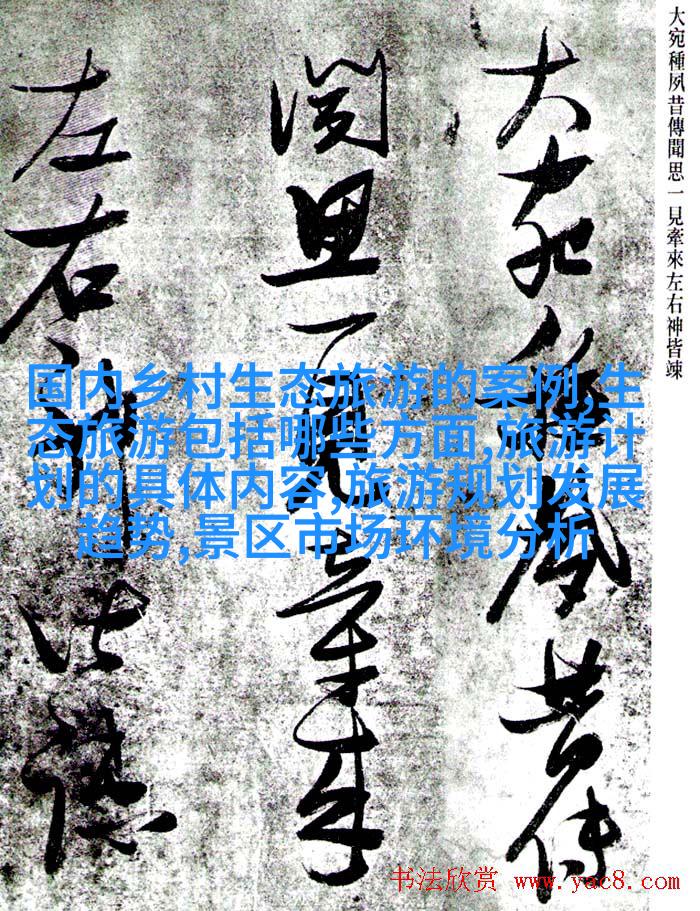 大宛種夙昔傳聞思一見牽來左右神皆竦
大宛種夙昔傳
聞思一見牽來
左右神皆竦
国内乡村生态旅游的案例,生
态旅游包括哪些方面,旅游计
划的具体内容,旅游规划发展
趋势,景区市场环境分析
书法欣赏 www.yac8.com